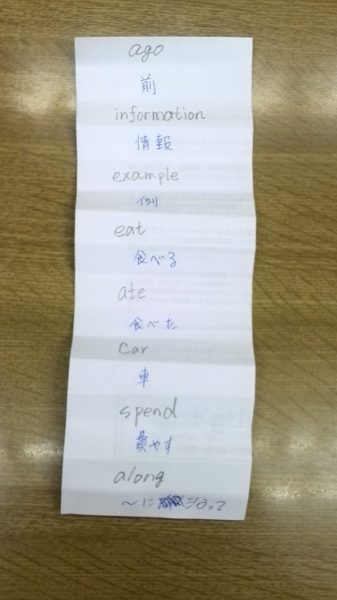 ago
前
information
情報
example
例
eat
食べる
ate
食べた
car
車
spend
費やす
along
〜に沿って